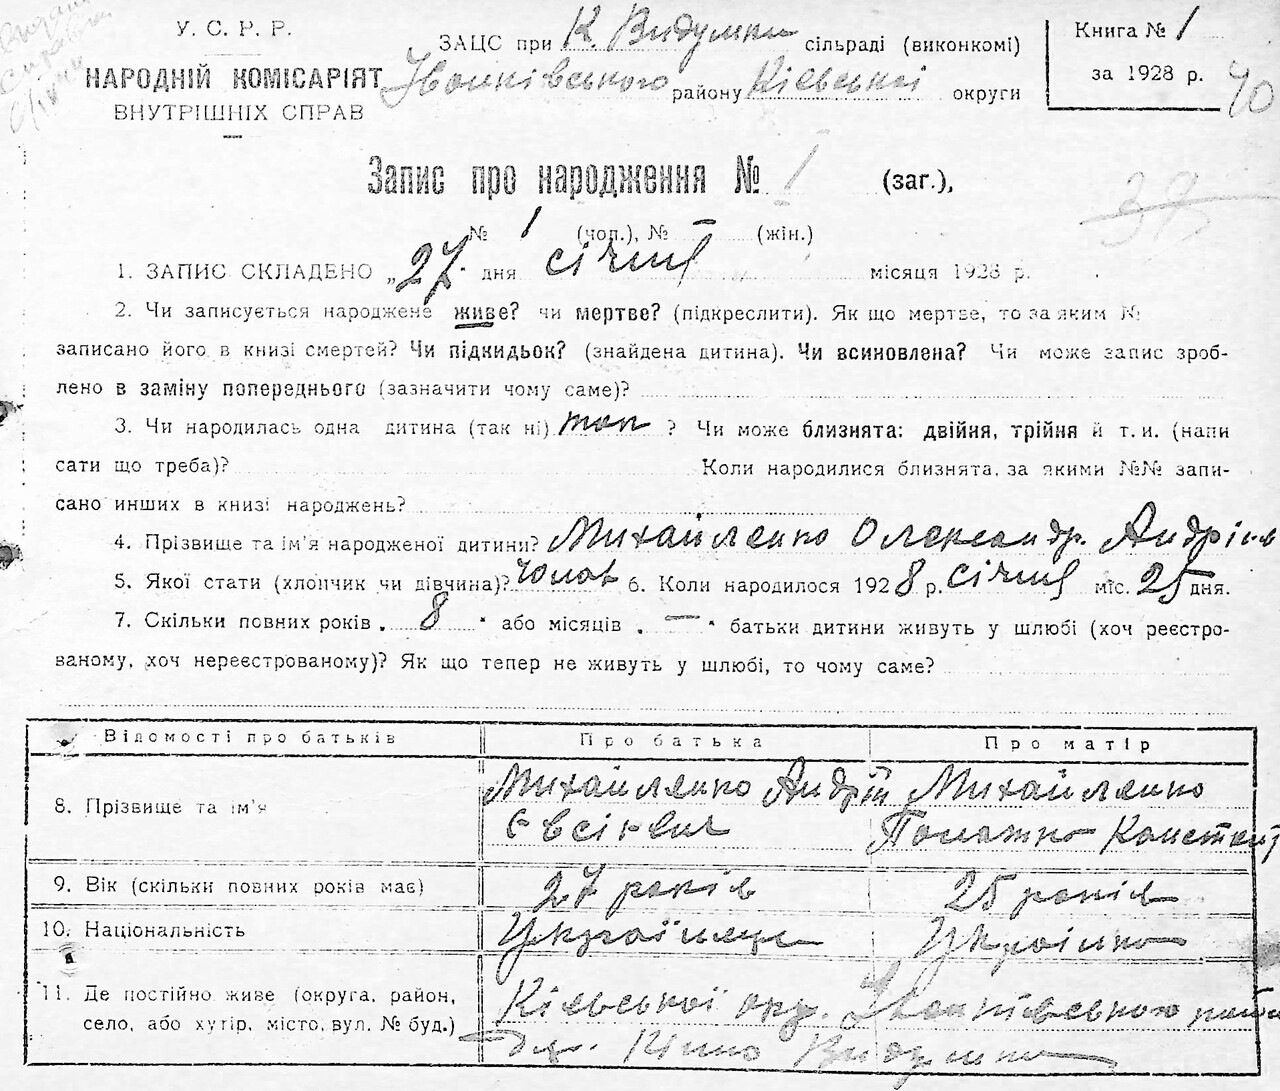 У. С. Р. Р.
НАРОДНІЙ КОМІСАРІЯТ
ВНУТРІШНІХ СПРАВ
ЗАЦС при К. Видумки сільраді (виконкомі)
Іванківського району Київської округи
Книга № 1
за 1928 р.
40
Запис про народження № 1 (заг.),
39
№ 1 (чол.), № — (жін.)
1. ЗАПИС СКЛАДЕНО „27" дня січня місяця 1928 р.
2. Чи записується народжене живе? чи мертве? (підкреслити). Як що мертве, то за яким №
записано його в книзі смертей? Чи підкидьок? (знайдена дитина). Чи всиновлена? Чи може запис зроб-
лено в заміну попереднього (зазначити чому саме)?
3. Чи народилась одна дитина (так ні) так ? Чи може близнята: двійня, трійня й т. и. (напи
сати що треба)? Коли народилися близнята, за якими №№ запи-
сано инших в книзі народжень?
4. Прізвище та ім'я народженої дитини? Михайленко Олександр. Андріів
5. Якої стати (хлопчик чи дівчина)? чолов 6. Коли народилося 1928 р. січня міс. 25 дня.
7. Скільки повних років „ 8 " або місяців „ — " батьки дитини живуть у шлюбі (хоч реєстро-
ваному, хоч нереєстрованому)? Як що тепер не живуть у шлюбі, то чому саме?
Відомості про батьків Про батька Про матір
8. Прізвище та ім'я Михайленко Андрій Євсікович Михайленко
9. Вік (скільки повних років має) 27 років 25 років
10. Національність Українець Українка
11. Де постійно живе (округа, район, Київської окр. Іванківського район
село, або хутір, місто, вул. № буд.) Видумка